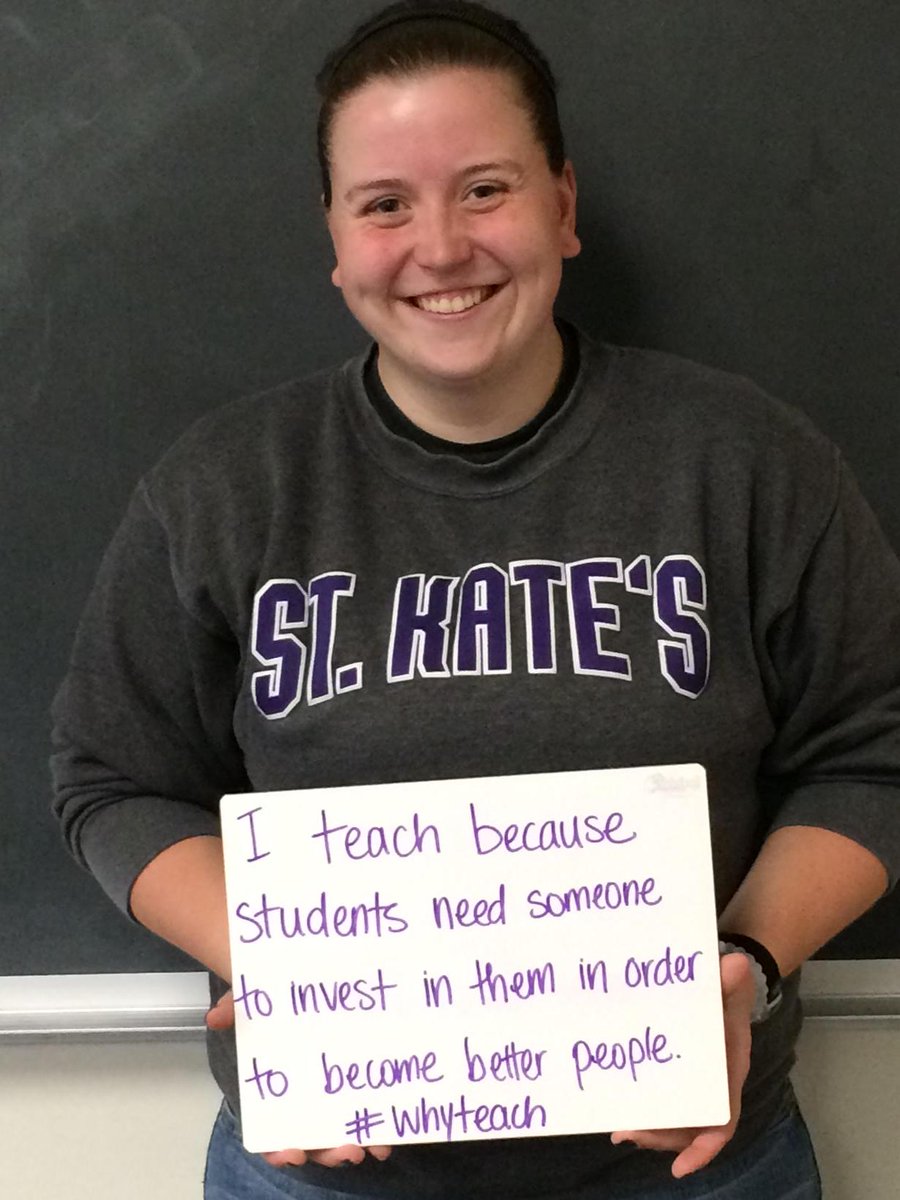 ST. KATE'S
I teach because
students need someone
to invest in them in order
to become better people.
#whyteach